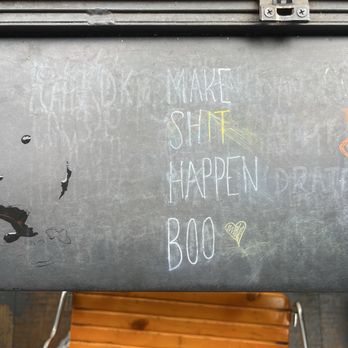 MAKE
SHIT
HAPPEN
BOO